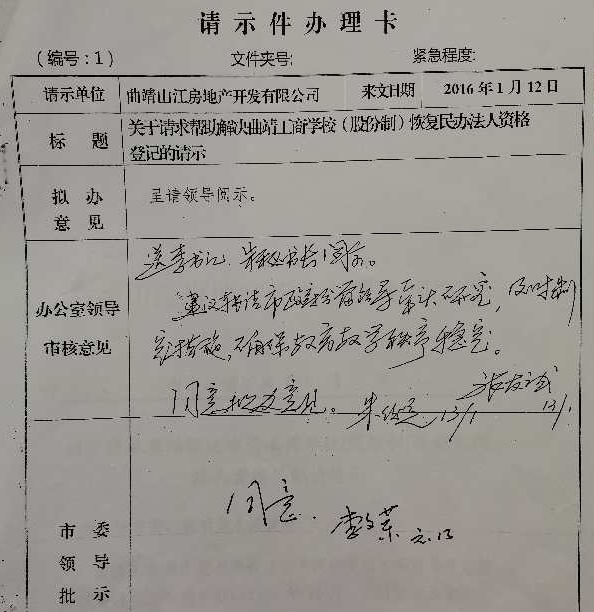 请示件办理卡
（编号：1） 文件夹号: 紧急程度:
请示单位 曲靖山江房地产开发有限公司 来文日期 2016年1月12日
标题 关于请求帮助解决曲靖工商学校（股份制）恢复民办法人资格
登记的请示
拟办
意见 呈请领导阅示。
办公室领导
审核意见
送李书记、朱秘书长阅示。
建议转请市政府分管领导 研究，及时制
定措施，确保 教学秩序稳定。
同意拟办意见。 12/1 12/1
市委
领导
批示
同意. 李文荣